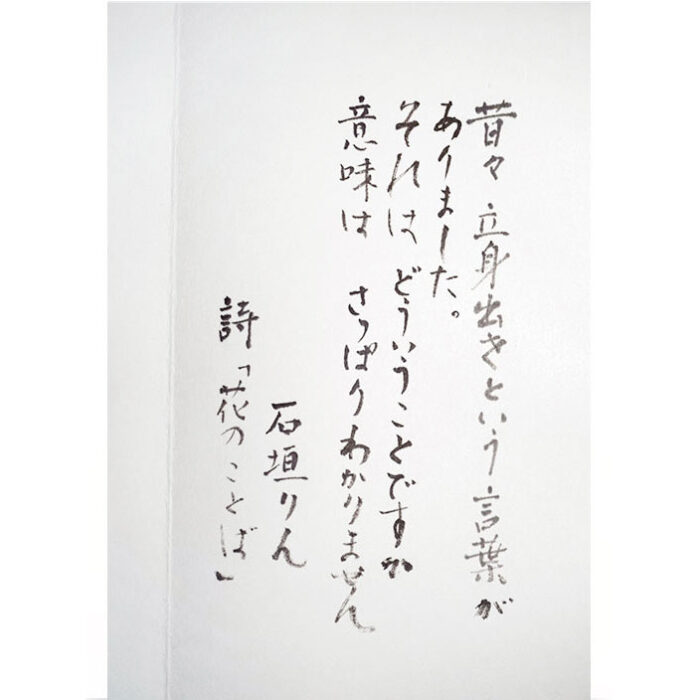 昔々 立身出世という言葉が
ありました。
それは どういうことですか
意味は さっぱりわかりません
石垣りん
詩「花のことば」